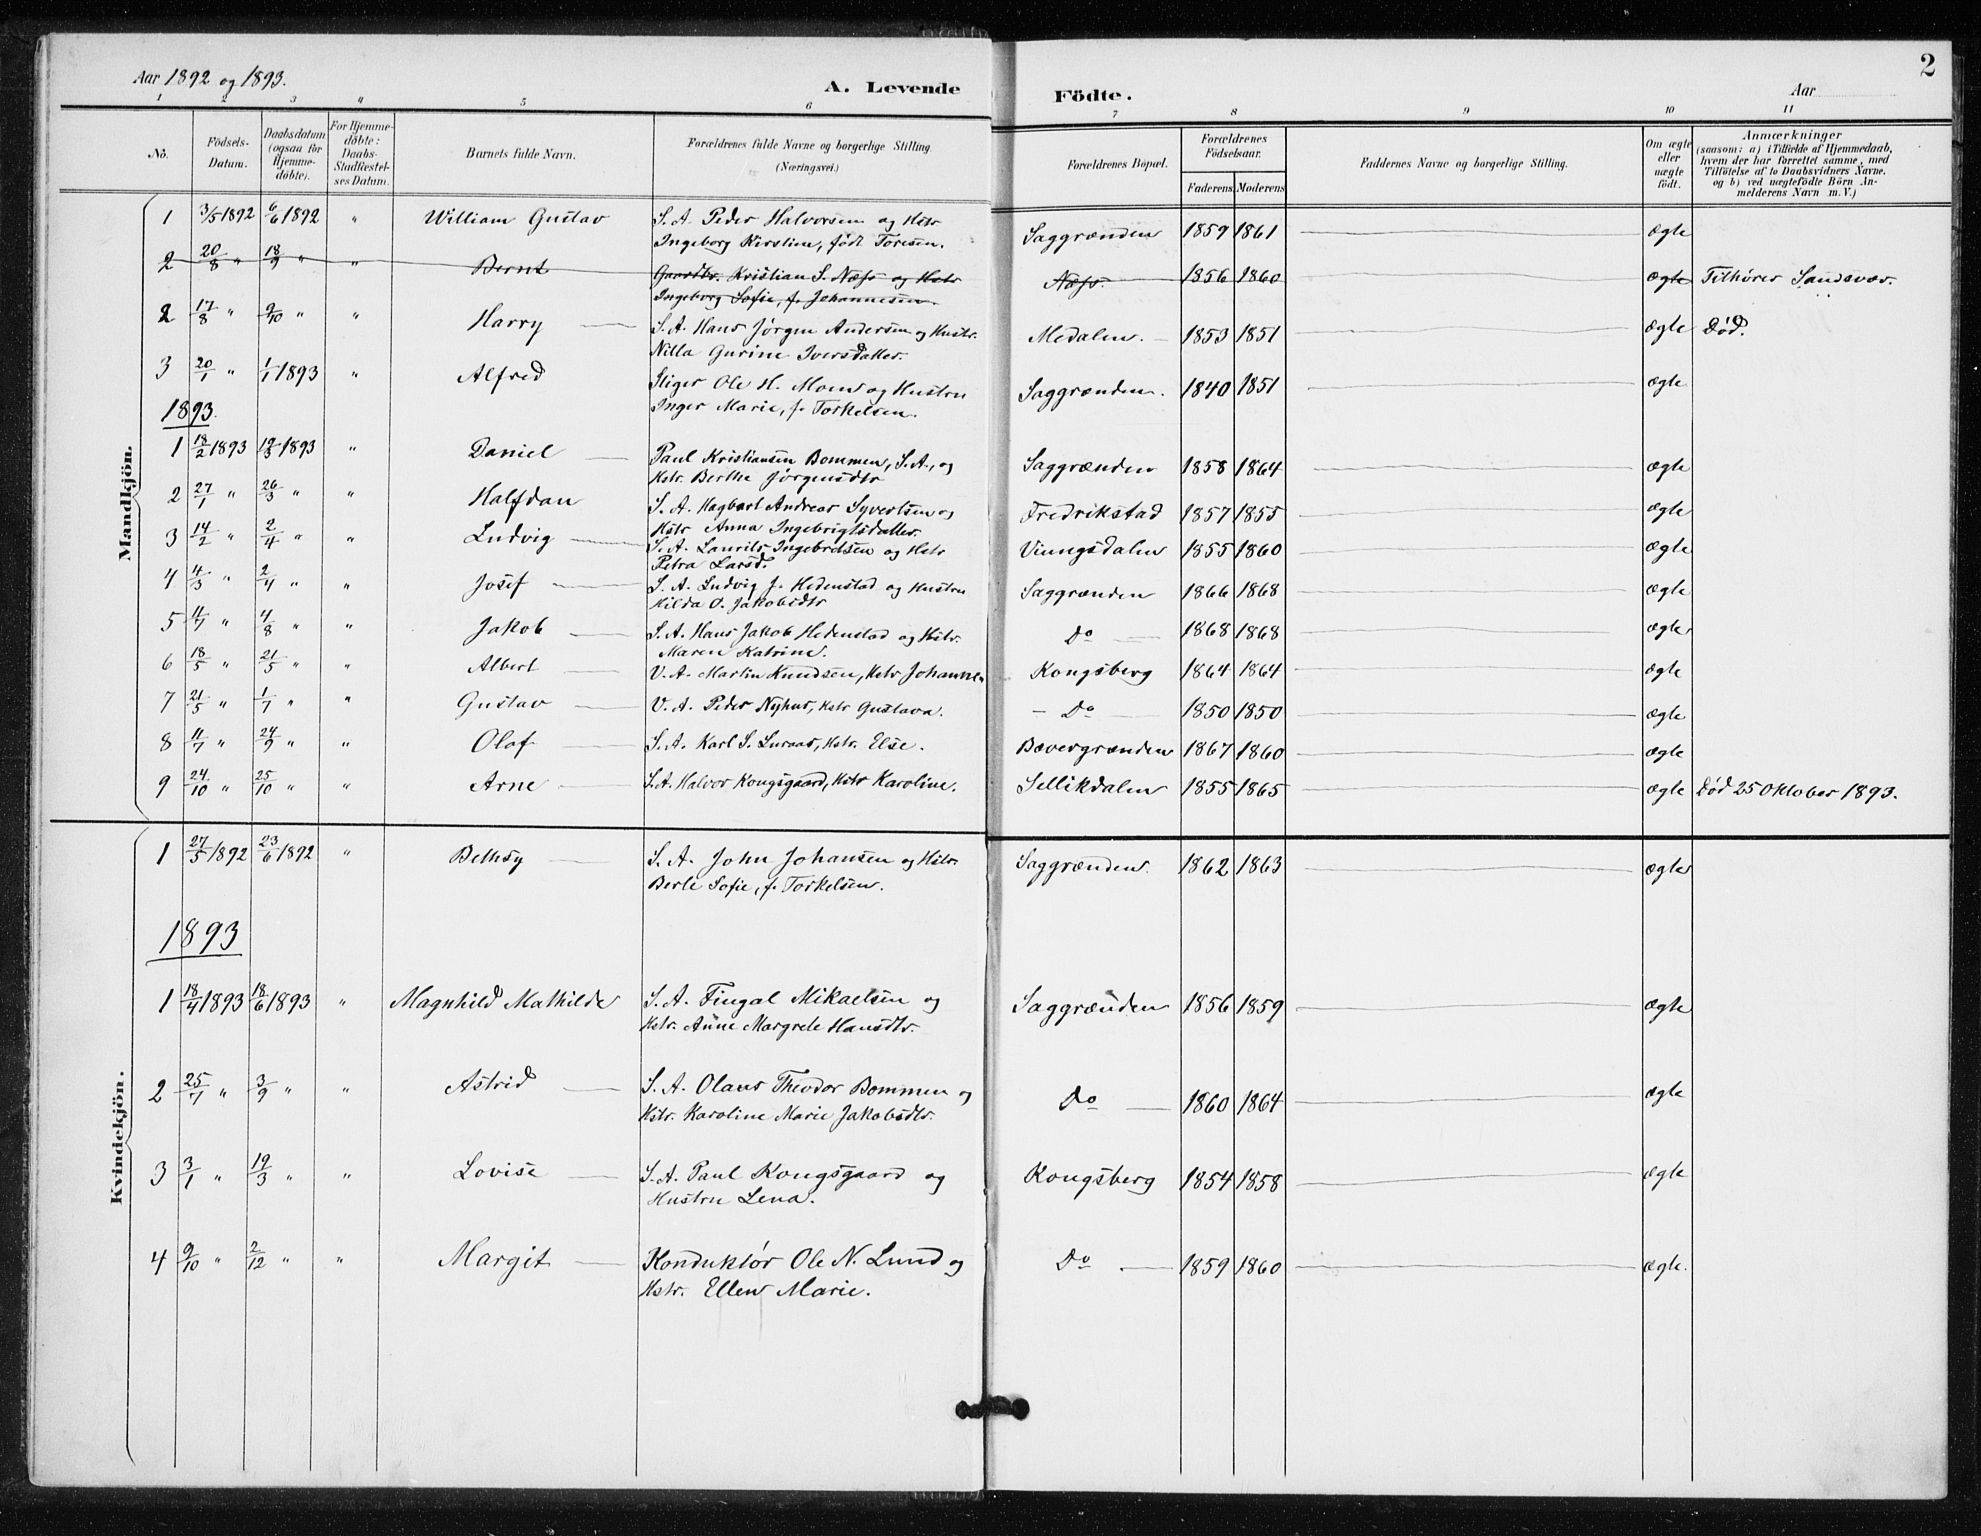 2
Aar 1892 og 1893.
A. Levende Födte.
Aar
1 2 3 4 5 6 7 8 9 10 11
No.
Födsels-Datum.
Daabsdatum (ogsaa for Hjemme-döbte).
For Hjemme-döbte: Daabs-Stadfæstel-ses Datum.
Barnets fulde Navn.
Forældrenes fulde Navne og borgerlige Stilling.
(Næringsvei.)
Forældrenes Bopæl.
Forældrenes Födselsaar.
Faderens Moderens
Faddernes Navne og borgerlig Stilling.
Om ægte eller uægte födt.
Anmærkninger
(saasom: a) i Tilfælde af Hjemmedaab,
hvem der har forrettet samme, med
Tilföielse af to Daabsvidners Navne.
og b) ved uægtefödte Börn An-
melderens Navn m. V.)
Mandkjön.
1 3/5 1892 6/6 1892 " William Gustav S. A. Peder Halvorsen og Hstr Saggrænden 1859 1861 ægte
Ingeborg Kirstine, født Toresen.
2 20/8 " 18/9 " " Bernt Gaardbr. Kristian S. Næss og Hstr Næss. 1856 1860 ægte Tilhører Sandsvær.
Ingeborg Sofie, f. Johannesen.
2 17/8 " 9/10 " " Harry S. A. Hans Jørgen Andersen og Hustr. Medalen. 1853 1851 ægte Død.
Nilla Gurine Iversdatter.
3 20/1 " 1/1 1893 " Alfred Stiger Ole H. Moen og Hustru Saggrænden. 1840 1851 ægte
Inger Marie, f. Torkelsen.
1893.
1 18/2 1893 19/3 1893 " Daniel Paul Kristiansen Bommen, S. A., og Saggrænden 1858 1864 ægte
Hstr. Berthe Jørgensdtr
2 27/1 " 26/3 " " Halfdan S. A. Hagbart Andreas Syvertsen og Fredrikstad 1857 1855 ægte
Hstr Anna Ingebrigtsdatter.
3 14/2 " 2/4 " " Ludvig S. A. Laurits Ingebretsen og Hstr Viungsdalen 1855 1860 ægte
Petra Larsd.
4 4/3 " 2/4 " " Josef S. A. Ludvig J. Hedenstad og Hustru Saggrænden 1866 1868 ægte
Hilda O. Jakobsdtr
5 11/7 " 4/8 " " Jakob S. A. Hans Jakob Hedenstad og Hstr. Do 1868 1868 ægte
Maren Katrine.
6 18/5 " 21/5 " " Albert V. A. Martin Knudsen, Hstr Johanne Kongsberg 1864 1864 ægte
7 21/5 " 1/7 " " Gustav V. A. Peder Nyhus, Hstr Gustava. Do 1850 1850 ægte
8 11/7 " 24/9 " " Olaf S. A. Karl S. Luraas, Hstr. Else. Bævergrænden 1867 1860 ægte
9 24/10 " 25/10 " " Arne S. A. Halvor Kongsgaard, Hstr Karoline. Sellikdalen 1855 1865 ægte Død 25 Oktober 1893.
Kvindekjön.
1 27/5 1892 23/6 1892 " Bethsy S. A. John Johansen og Hstr. Saggrænden. 1862 1863 ægte
Berte Sofie, f. Torkelsen.
1893
1 18/4 1893 18/6 1893 " Magnhild Mathilde S. A. Fingal Mikaelsen og Saggrænden 1856 1859 ægte
Hstr. Anne Margrete Hansdtr.
2 25/7 " 3/9 " " Astrid S. A. Olaus Theodor Bommen og Do 1860 1864 ægte
Hstr. Karoline Marie Jakobsdtr.
3 3/1 " 19/3 " " Lovise S. A. Paul Kongsgaard og Kongsberg 1854 1858 ægte
Hustru Lena.
4 9/10 " 2/12 " " Margit Konduktør Ole N. Lund og Do 1859 1860 ægte.
Hstr. Ellen Marie.